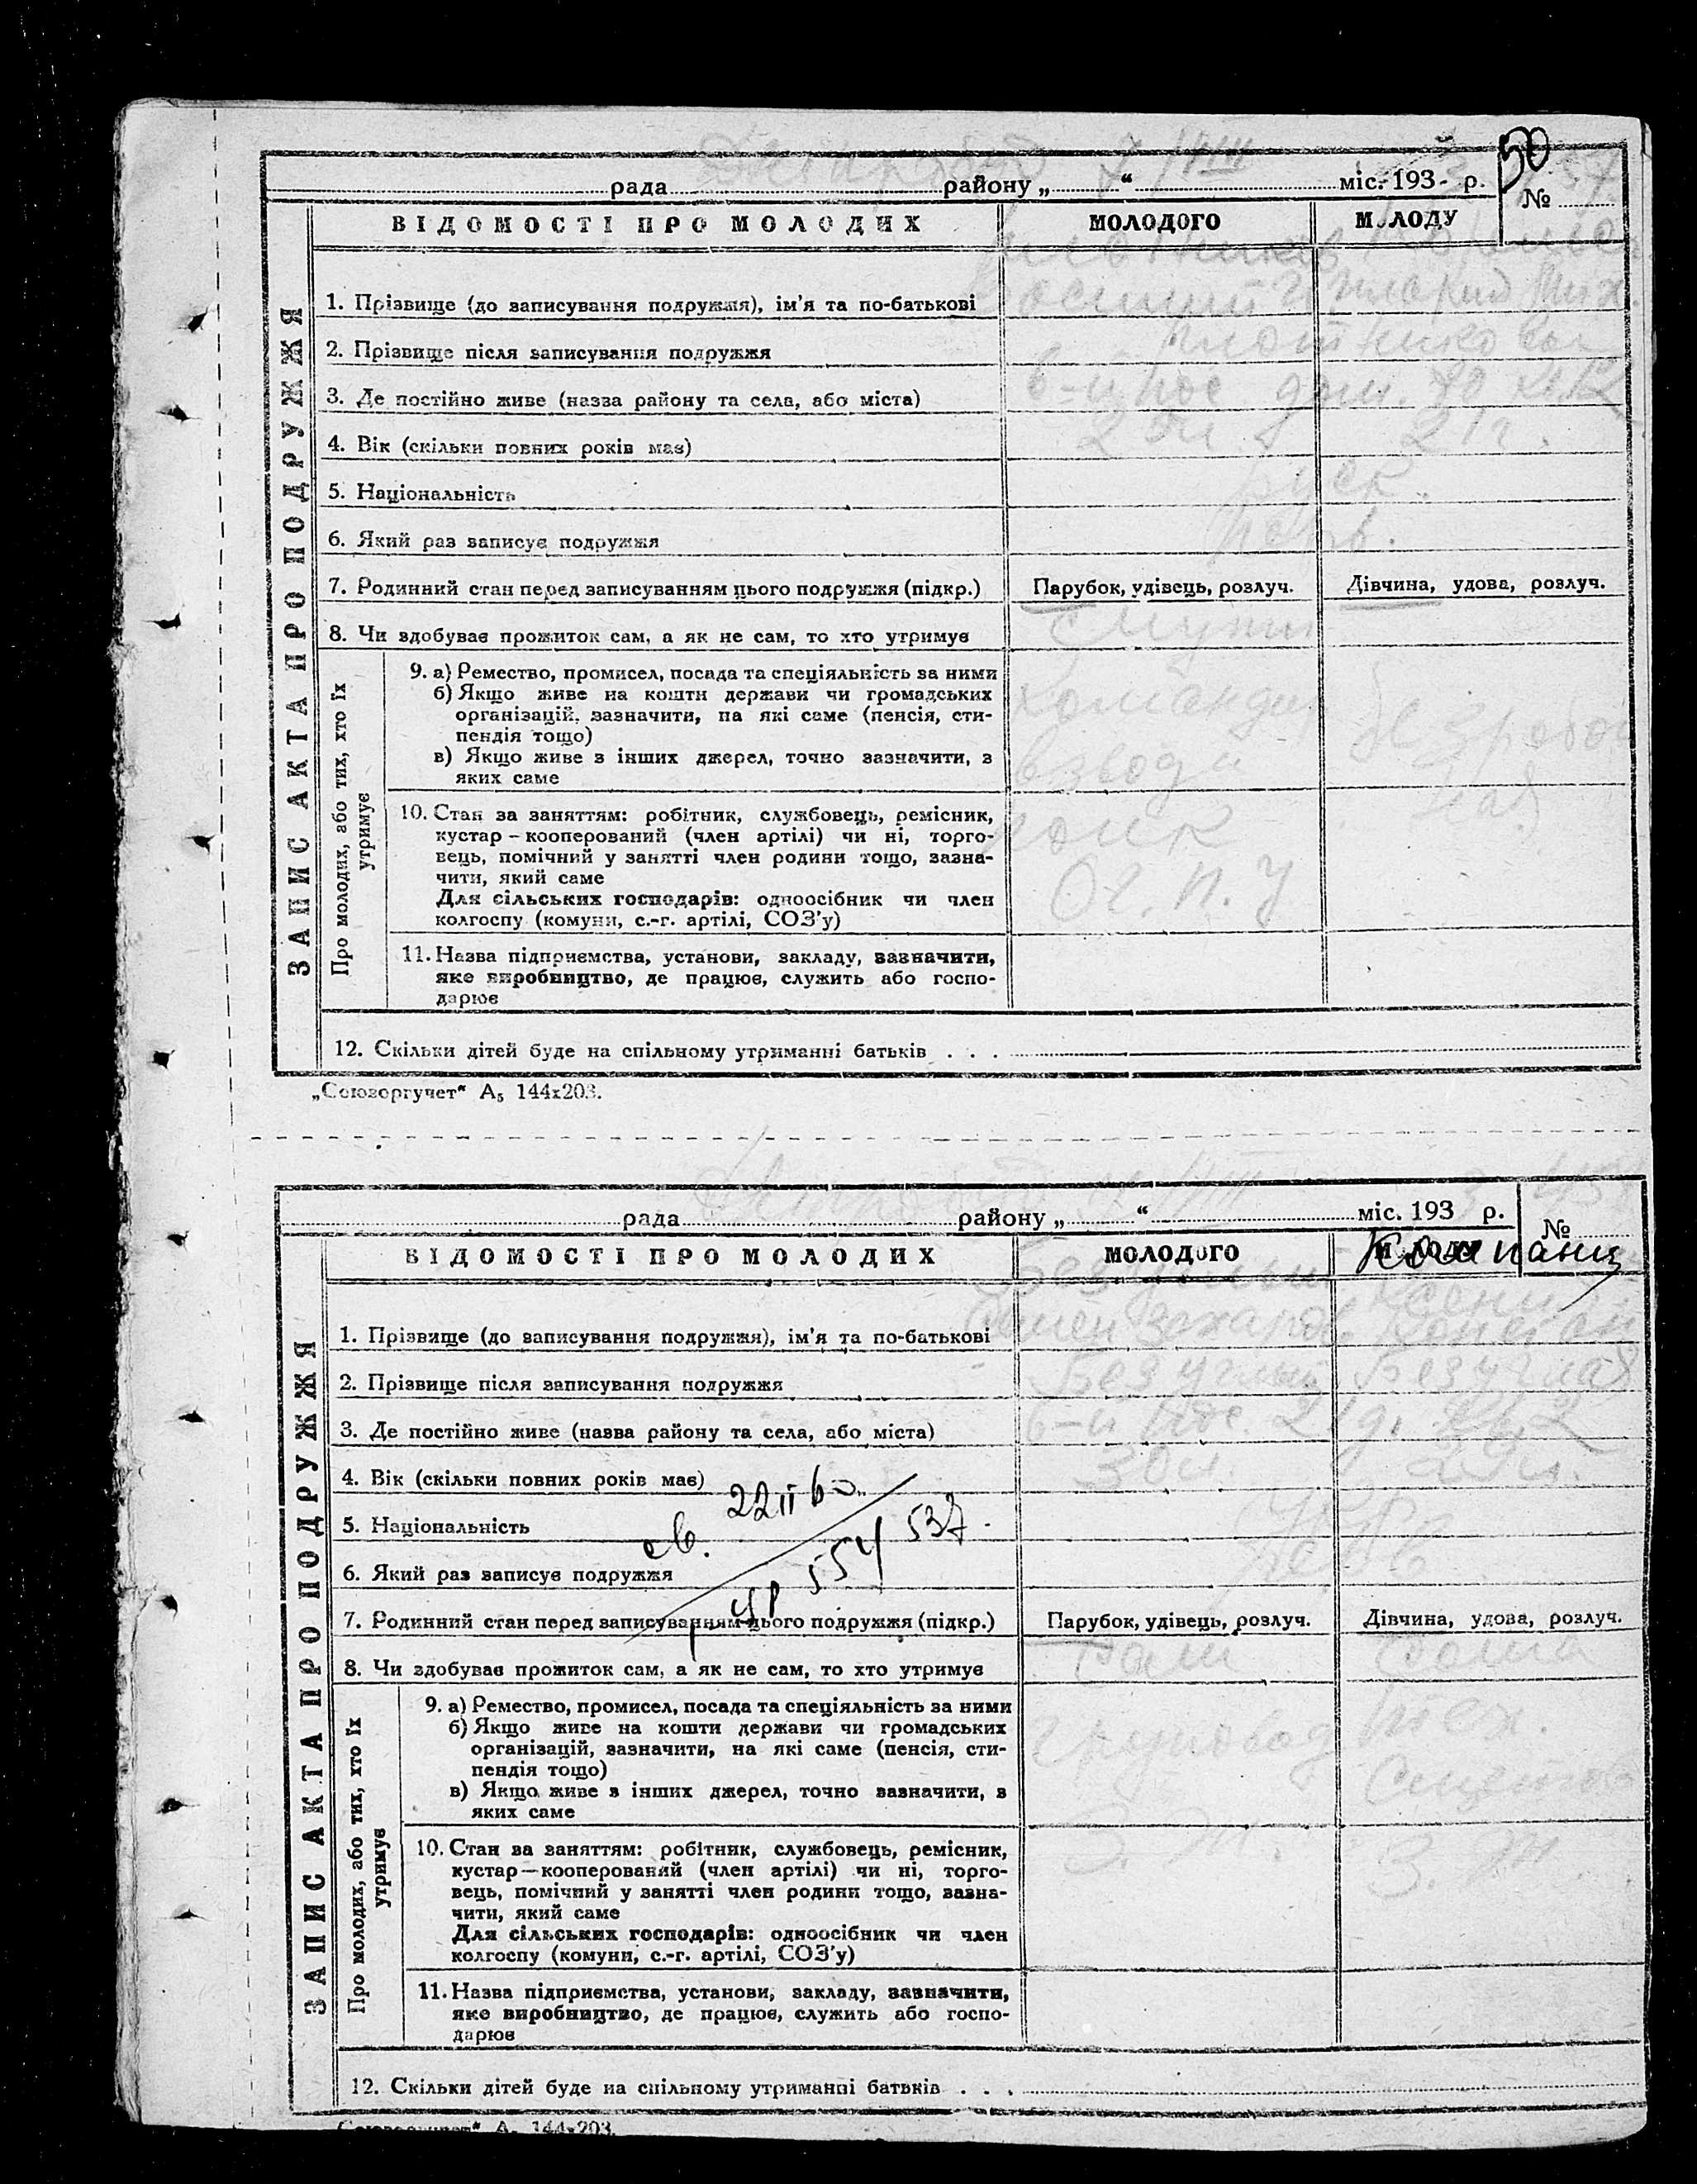 50
рада районУ „ “ міс. 193 р. №
ВІДОМОСТІ ПРО МОЛОДИХ МОЛОДОГО МОЛОДУ
ЗАПИС АКТА ПРО ПОДРУЖЖЯ
1. Прізвище (до записування подружжя), ім’я та по-батькові
2. Прізвище після записування подружжя
3. Де постійно живе (назва району та села, або міста) 6-й пос дом. 80
4. Вік (скільки повних років має) 21 г.
5. Національність руск.
6. Який раз записує подружжя перв.
7. Родинний стан перед записуванням цього подружжя (підкр.) Парубок, удівець, розлуч. Дівчина, удова, розлуч.
8. Чи здобуває прожиток сам, а як не сам, то хто утримує
Про молодих, або тих, хто їх утримує
9. а) Ремество, промисел, посада та спеціяльність за ними
б) Якщо живе на кошти держави чи громадських
організацій, зазначити, на які саме (пенсія, сти-
пендія тощо)
в) Якщо живе з інших джерел, точно зазначити, з
яких саме
взвода
10. Стан за заняттям: робітник, службовець, ремісник,
кустар – кооперований (член артілі) чи ні, торго-
вець, помічний у занятті член родини тощо, зазна-
чити, який саме
Для сільських господарів: одноосібник чи член
колгоспу (комуни, с.-г. артілі, СОЗ’у)
полк
О.Г.П.У
11. Назва підприємства, установи, закладу, зазначити,
яке виробництво, де працює, служить або госпо-
дарює
12. Скільки дітей буде на спільному утриманні батьків . . .
„Союзоргучет“ А₅ 144х203.
рада району „ “ міс. 193 р. №
ВІДОМОСТІ ПРО МОЛОДИХ МОЛОДОГО МОЛОДУ
ЗАПИС АКТА ПРО ПОДРУЖЖЯ
1. Прізвище (до записування подружжя), ім’я та по-батькові
2. Прізвище після записування подружжя Безуглый Безуглая
3. Де постійно живе (назва району та села, або міста) 6-й пос. 21 д. кв 2
4. Вік (скільки повних років має) 30 л.
22 II 60
5. Національність Укр.
св. 537
6. Який раз записує подружжя перв
554
7. Родинний стан перед записуванням цього подружжя (підкр.) Парубок, удівець, розлуч. Дівчина, удова, розлуч.
8. Чи здобуває прожиток сам, а як не сам, то хто утримує сам сама
Про молодих, або тих, хто їх утримує
9. а) Ремество, промисел, посада та спеціяльність за ними
б) Якщо живе на кошти держави чи громадських
організацій, зазначити, на які саме (пенсія, сти-
пендія тощо)
в) Якщо живе з інших джерел, точно зазначити, з
яких саме
10. Стан за заняттям: робітник, службовець, ремісник,
кустар—кооперований (член артілі) чи ні, торго-
вець, помічний у занятті член родини тощо, зазна-
чити, який саме
Для сільських господарів: одноосібник чи член
колгоспу (комуни, с.-г. артілі, СОЗ’у)
11. Назва підприємства, установи, закладу, зазначити,
яке виробництво, де працює, служить або госпо-
дарює
12. Скільки дітей буде на спільному утриманні батьків . . .
„Союзоргучет“ А₅ 144х203.